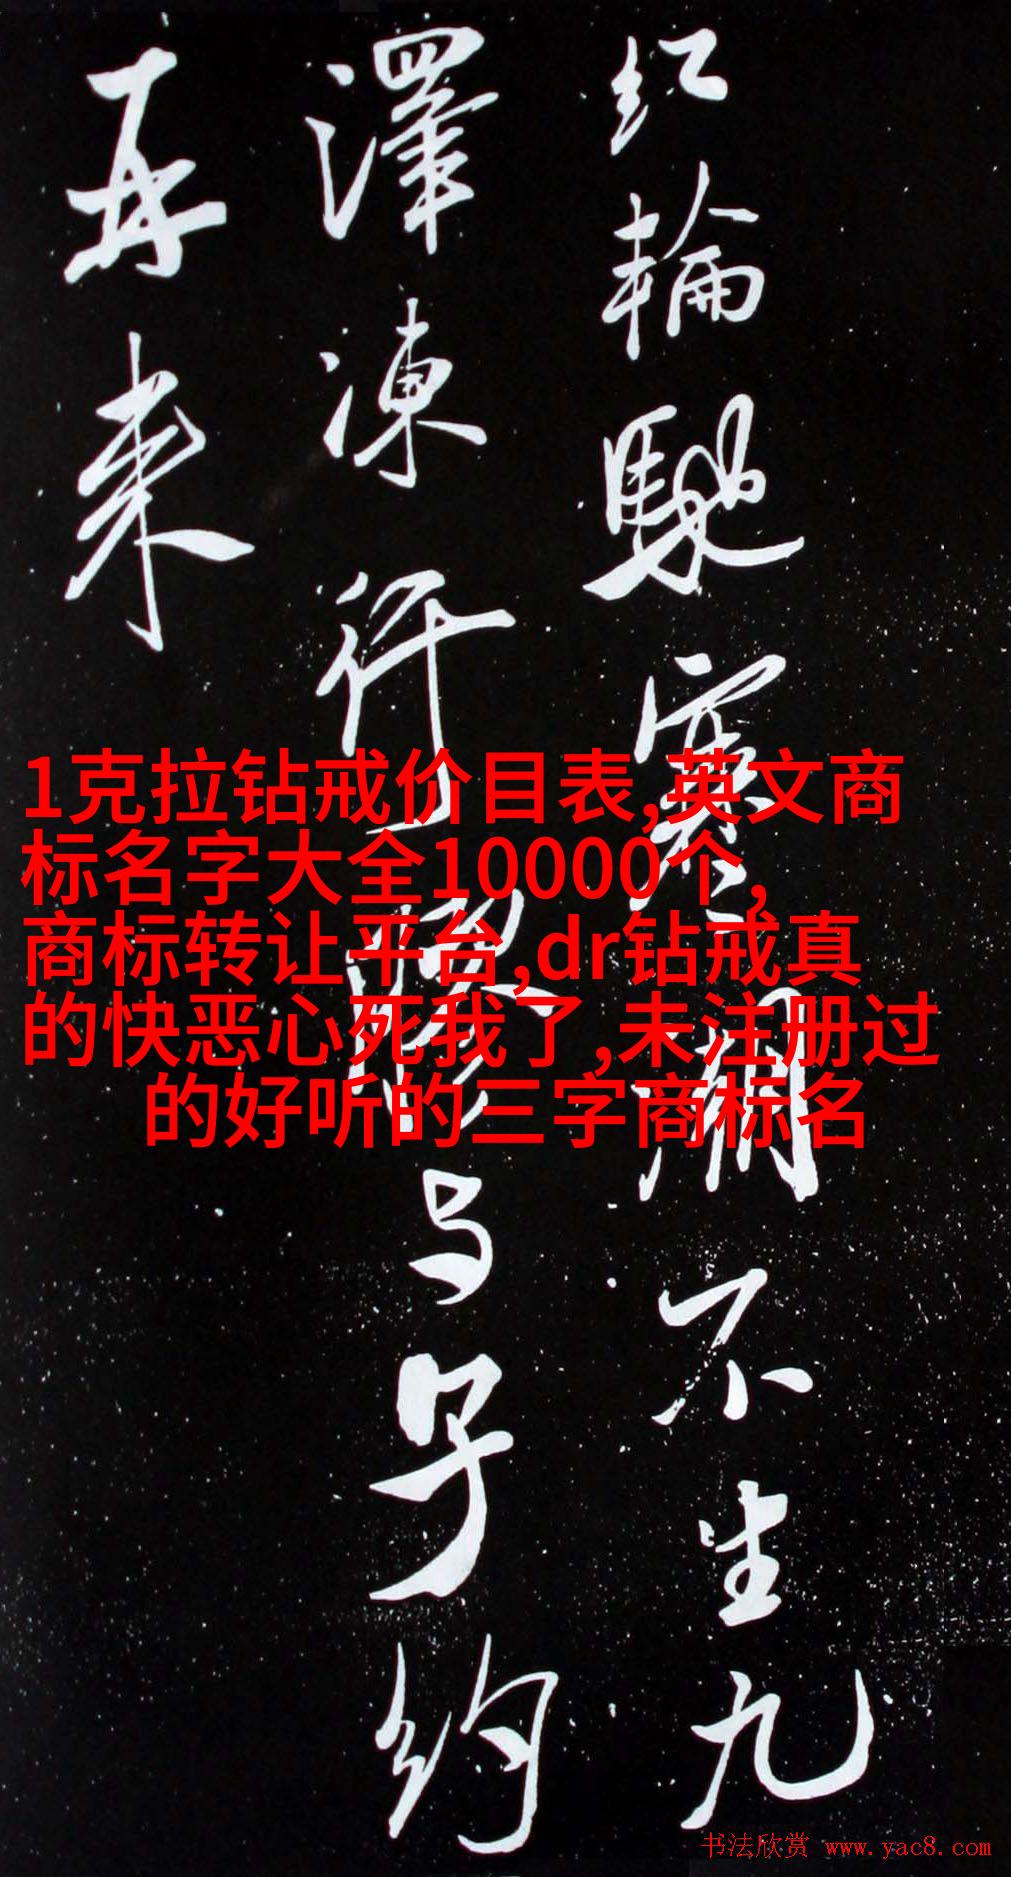 红輪馳寒不生九
澤凍行与子约
再来
1克拉钻戒价目表,英文商
标名字大全10000个,
商标转让平台,dr钻戒真
的快恶心死我了,未注册过
的好听的三字商标名
书法欣赏 www.yac8.com